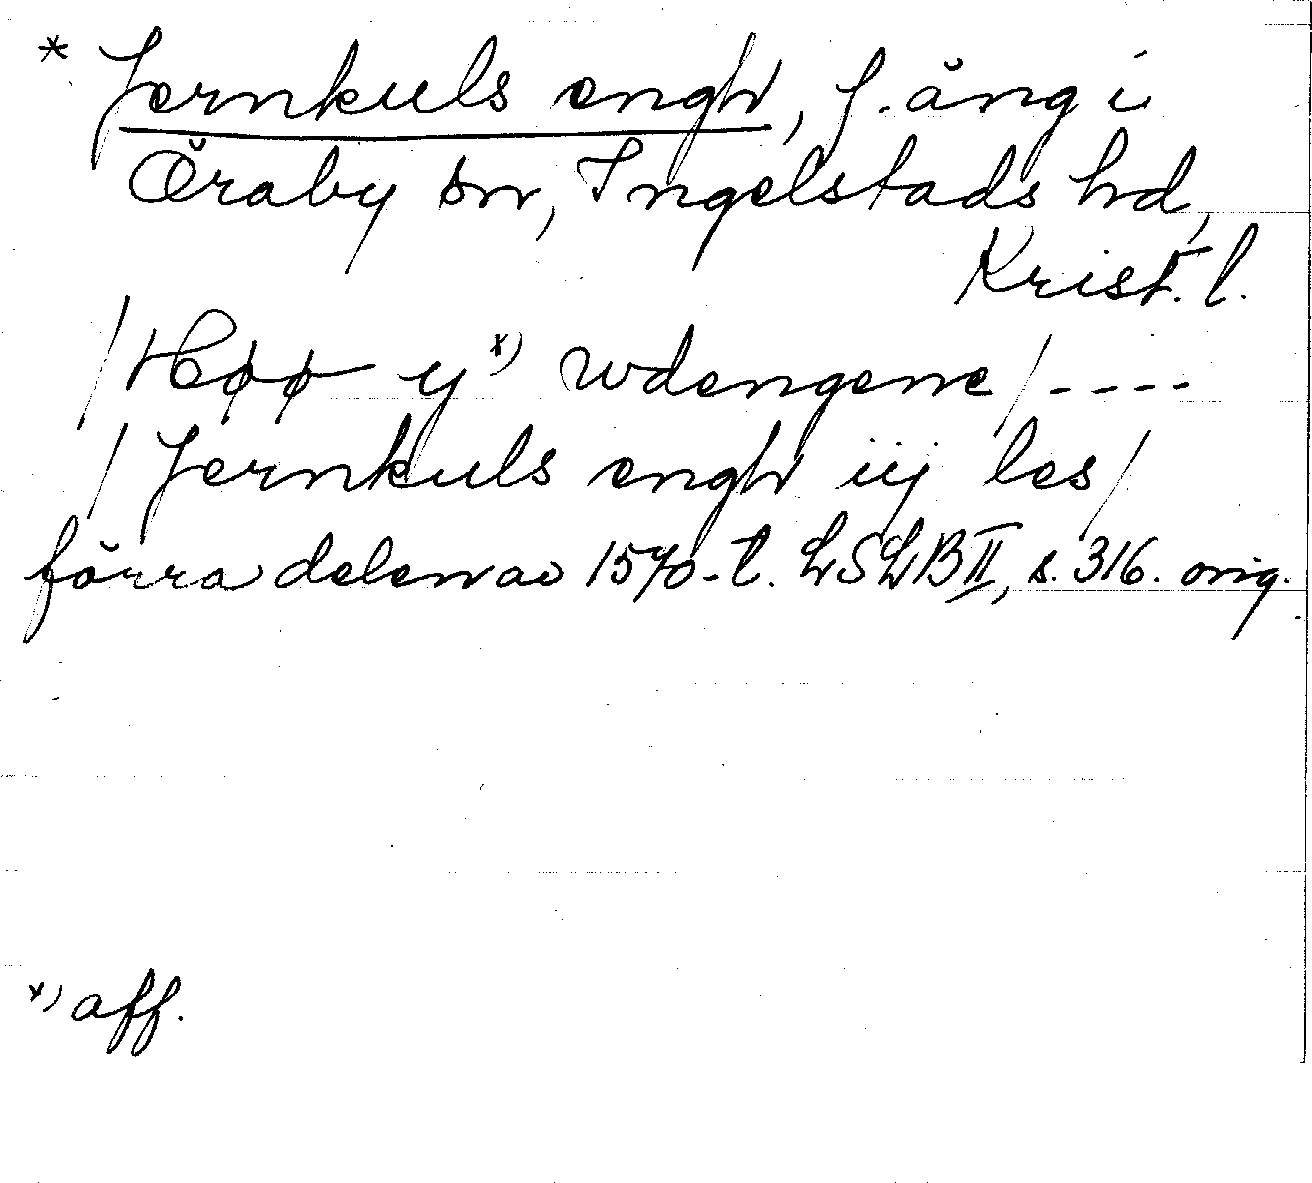 * Jernkuls engh, f. äng i
Öraby sn, Ingelstads hd,
Krist. l.
/Høø y x) wdengenne/----
/Jernkuls engh iij les/
förra delen av 1570-t. LSLB II, s. 316. orig.
x) aff.